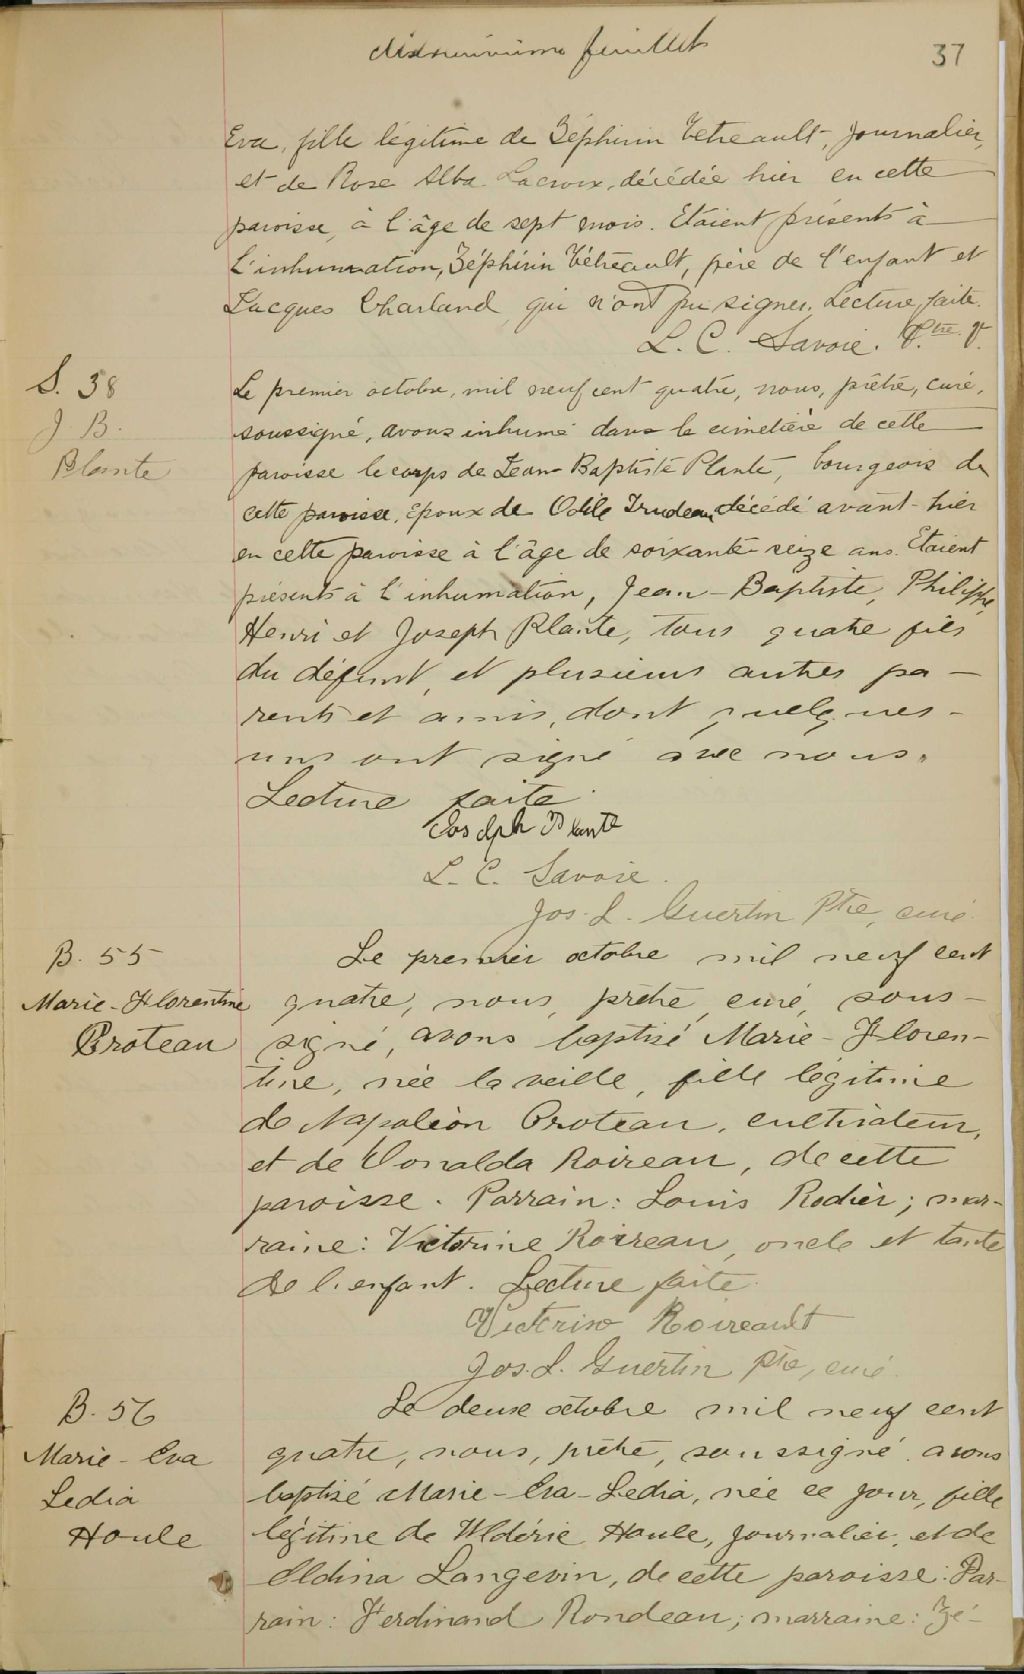 dixneuvième feuillet
37
Eva, fille légitime de Zéphirin Tétreault, journalier,
et de Rose Alba Lacroix, décédée hier en cette
paroisse, à l'âge de sept mois. Etaient présents à
l'inhumation, Zéphirin Tétreault, père de l'enfant et
Jacques Charland, qui n'ont pu signer. Lecture faite.
L. C. Savoie. Ptre. V.
S. 38
J. B.
Plante
Le premier octobre, mil neuf cent quatre, nous, prêtre, curé,
soussigné, avons inhumé dans le cimetière de cette
paroisse le corps de Jean-Baptiste Plante, bourgeois de
cette paroisse, époux de Odile Trudeau décédé avant-hier
en cette paroisse à l'âge de soixante-seize ans. Etaient
présents à l'inhumation, Jean-Baptiste, Philippe,
Henri et Joseph Plante, tous quatre fils
du défunt, et plusieurs autres pa-
rents et amis, dont quelques-
uns ont signé avec nous.
Lecture faite.
Joseph Plante
L. C. Savoie.
Jos. L. Guertin Ptre, curé.
B. 55
Marie-Florentine
Proteau
Le premier octobre mil neuf cent
quatre, nous, prêtre, curé, sous-
signé, avons baptisé Marie-Floren-
tine, née la veille, fille légitime
de Napoléon Proteau, cultivateur,
et de Donalda Roireau, de cette
paroisse. Parrain: Louis Rodier; mar-
raine: Victorine Roireau, oncle et tante
de l'enfant. Lecture faite.
Victorine Roireault
Jos. L. Guertin Ptre, curé.
B. 56
Marie-Eva
Ledia
Houle
Le deux octobre mil neuf cent
quatre, nous, prêtre, soussigné avons
baptisé Marie-Eva-Ledia, née ce jour, fille
légitime de Uldéric Houle, journalier, et de
Eldina Langevin, de cette paroisse: Par-
rain: Ferdinand Rondeau; marraine: Zé-